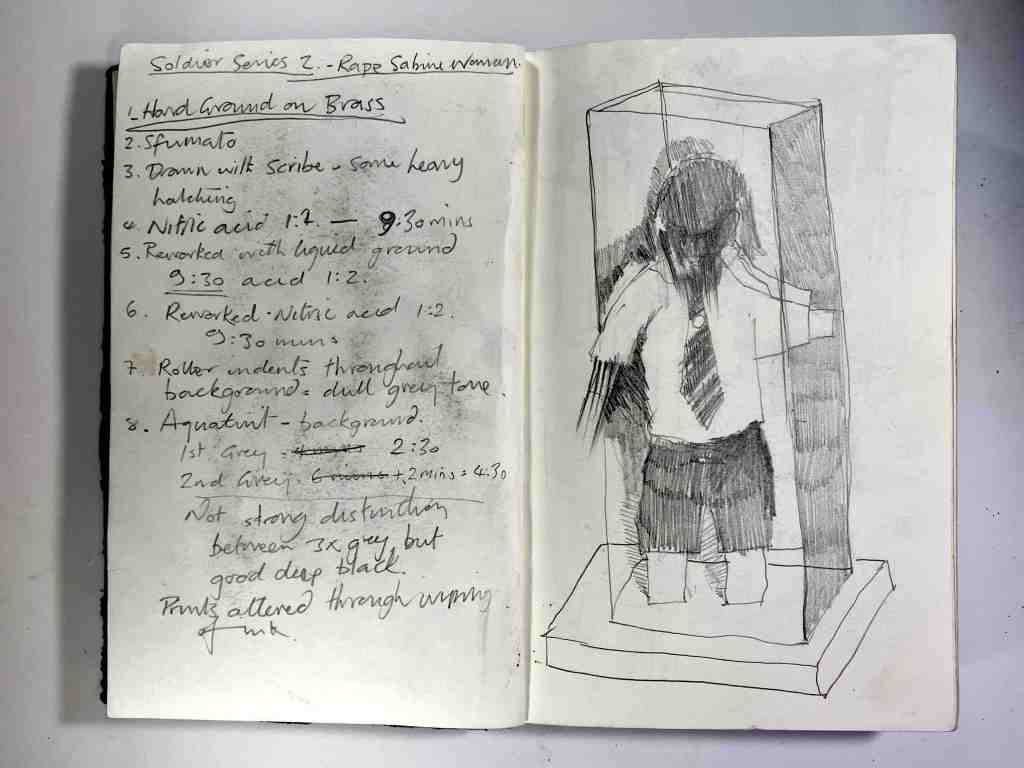 Soldier Series 2. - Rape Sabine Woman.
1. Hard Ground on Brass
2. Sfumato
3. Drawn with Scribe - some heavy
hatching
4. Nitric acid 1:2 — 9.30 mins
5. Reworked with liquid ground
9:30 acid 1:2.
6. Reworked · Nitric acid 1:2.
9:30 mins
7. Roller indents throughout
background = dull grey tone.
8. Aquatint - background.
1st Grey - 2:30
2nd Grey - 6 mins + 2 mins = 4.30
Not strong distinction
between 3x grey but
good deep black.
Prints altered through wiping
of ink.